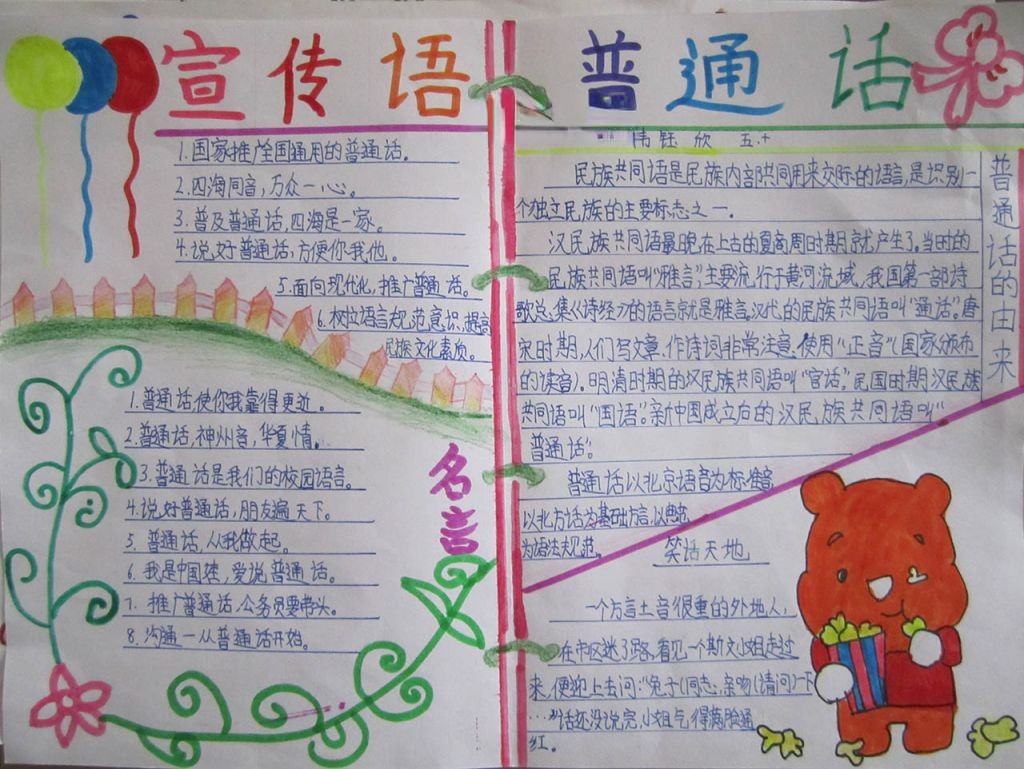 宣传语
1.国家推广全国通用的普通话。
2.四海同音，万众一心。
3.普及普通话，四海是一家。
4.说好普通话，方便你我他。
5.面向现代化，推广普通话。
6.树立语言规范意识，提高
民族文化素质。
名言
1.普通话使你我靠得更近。
2.普通话，神州音，华夏情。
3.普通话是我们的校园语言。
4.说好普通话，朋友遍天下。
5.普通话，从我做起。
6.我是中国娃，爱说普通话。
7.推广普通话，公务员要带头。
8.沟通一从普通话开始。
普通话
钰欣 五.十
普通话的由来
民族共同语是民族内部共同用来交际的语言，是识别一
个独立民族的主要标志之一。
汉民族共同语最晚在上古的夏商周时期就产生了。当时的
民族共同语叫“雅言”，主要流行于黄河流域，我国第一部诗
歌总集《诗经》的语言就是雅言。汉代的民族共同语叫“通话”。唐
宋时期，人们写文章、作诗词非常注意使用“正音”（国家颁布
的读音）。明清时期的汉民族共同语叫“官话”。民国时期汉民族
共同语叫“国语”。新中国成立后的汉民族共同语叫“
普通话”。
普通话以北京语音为标准音
以北方话为基础方言，以
为语法规范。
笑话天地
一个方言土音很重的外地人，
在市区迷了路，看见一个斯文小姐走过
来，便迎上去问：“兔子（同志），亲吻（请问）一下
…”话还没说完，小姐气得满脸通
红。